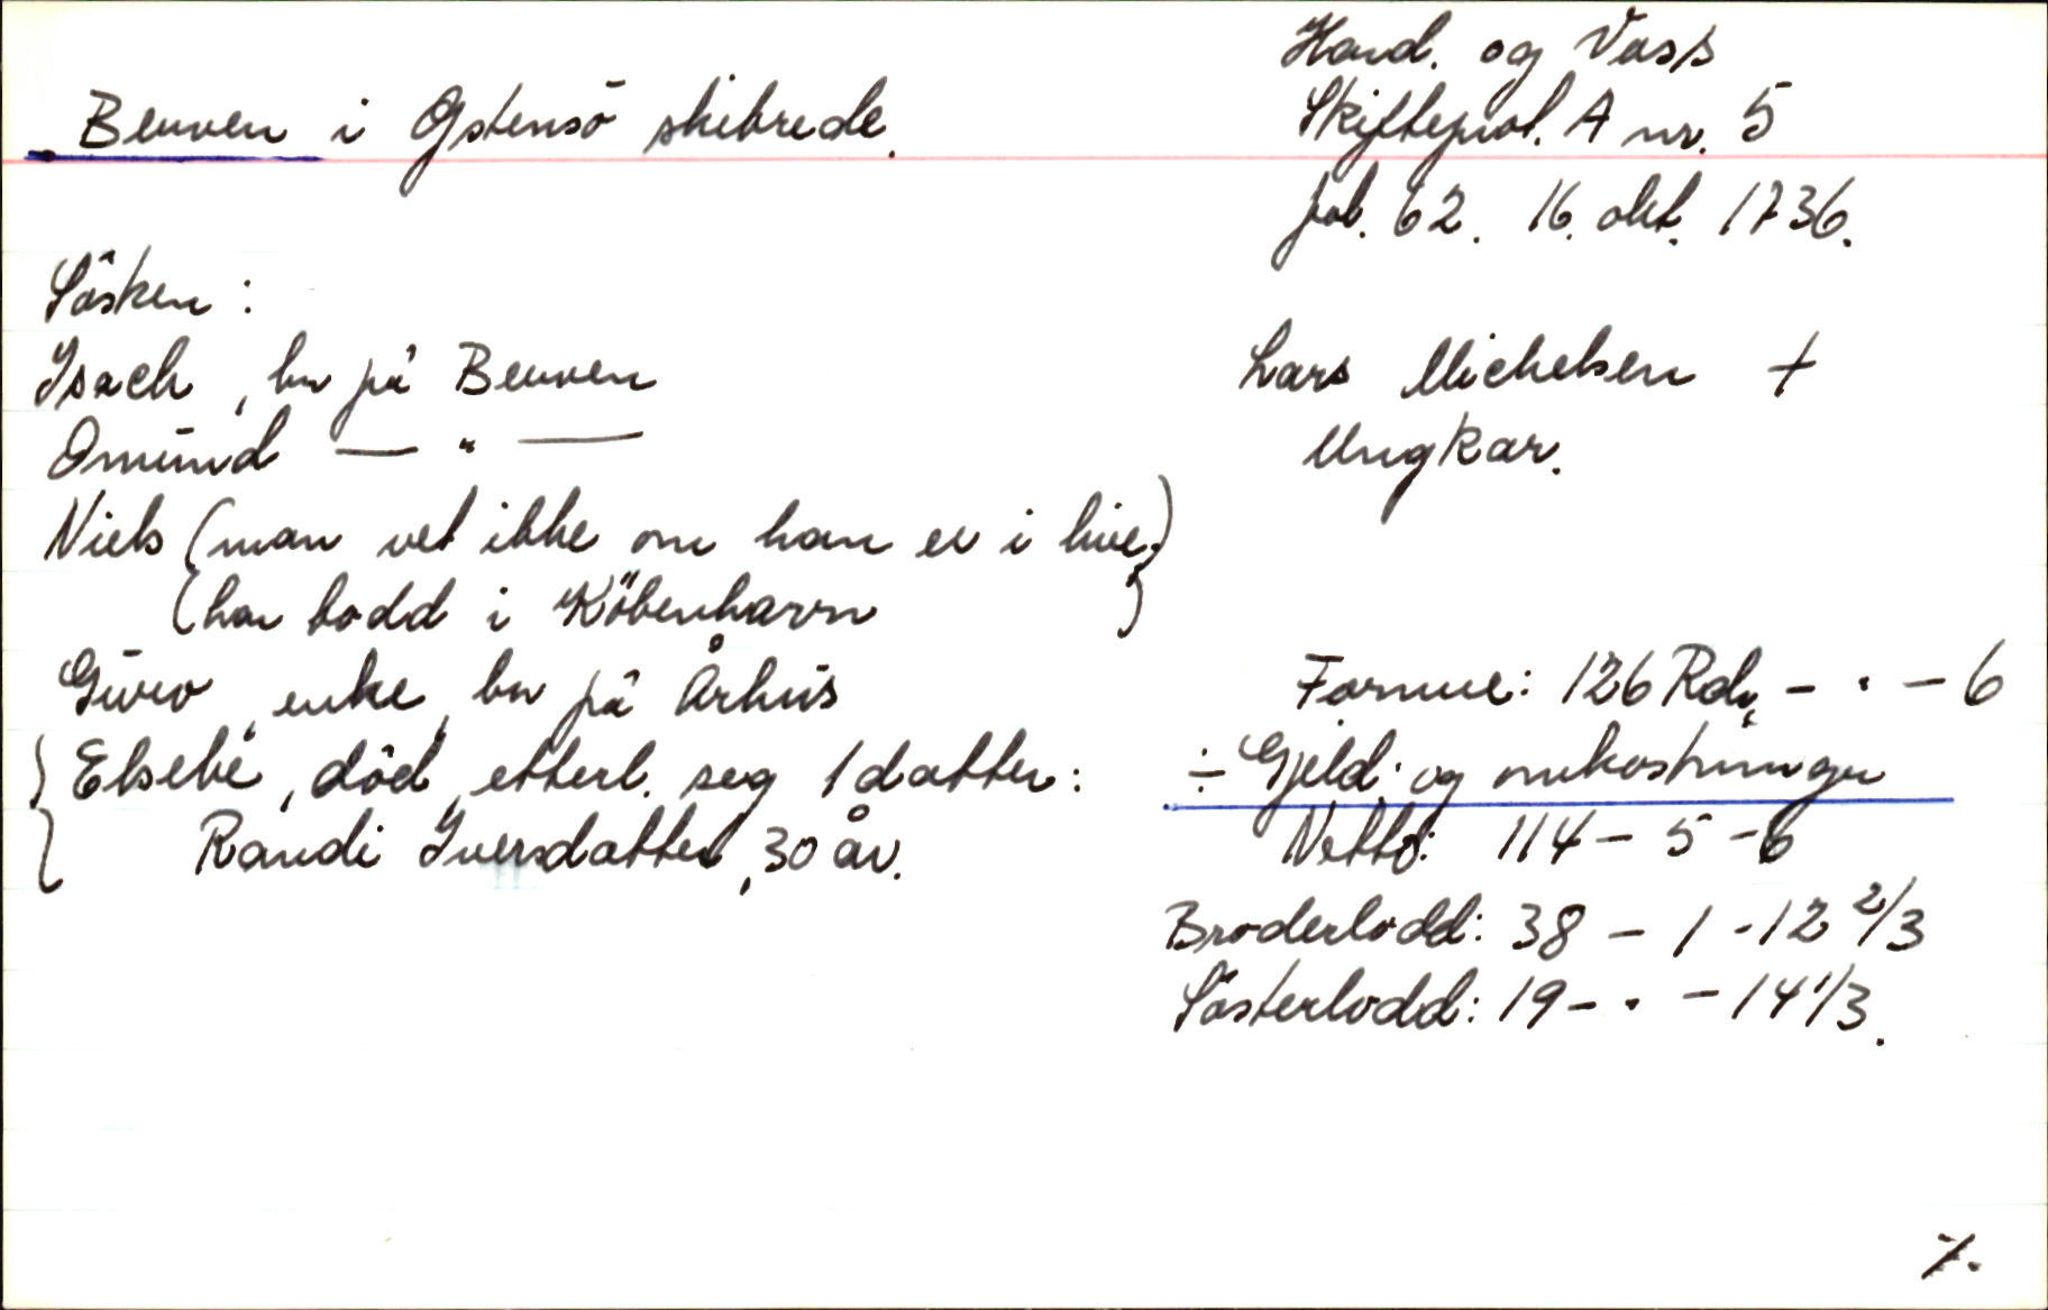 Hard. og Voss
Beuven i Østensö skibrede.
Skifteprot. A nr. 5
fol. 62. 16. okt. 1736.
Sösken:
Isach, bor på Beuven
Omund — " —
Niels (man vet ikke om han er i live.)
(har bodd i Köbenhavn)
Guro, enke, bor på Århus
Elsebe, död, etterl. seg 1 datter:
Randi Iversdatter, 30 år.
Lars Michelsen +
Ungkar.
Formue: 126 Rdr. - . - 6
÷ Gjeld og omkostninger
Netto: 114 - 5 - 6
Broderlodd: 38 - 1 - 12 2/3
Sösterlodd: 19 - . - 14 1/3.
7.